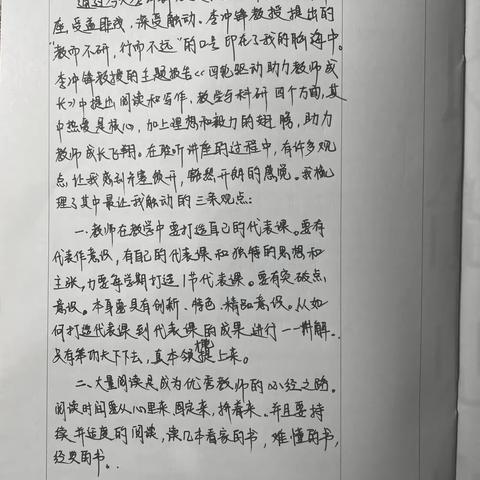 座,受益匪浅,深受触动。李冲锋教授提出的
"教师不研,行而不远"的口号印在了我的脑海中。
李冲锋教授的主题报告《四轮驱动助力教师成
长》中提出阅读和写作,教学与科研四个方面,其
中热爱是核心,加上理想和毅力的翅膀,助力
教师成长飞翔。在聆听讲座的过程中,有许多观
点,让我感到茅塞顿开,豁然开朗的感觉。我梳
理了其中最让我触动的三条观点:
一.教师在教学中要打造自己的代表课。要有
代表作意识,有自己的代表课和独特的思想和
主张,力要每学期打造1节代表课。要有突破点
意识。本身要具有创新、特色、精品意识。从如
何打造代表课到代表课的成果进行一一讲解.
只有等功夫下下去,真本领才能提上来。
二、大量阅读是成为优秀教师的必经之路。
阅读时间要从心里来,固定来,挤着来。并且要持
续并适度的阅读,读几本看家的书,难懂的书,
经典的书。